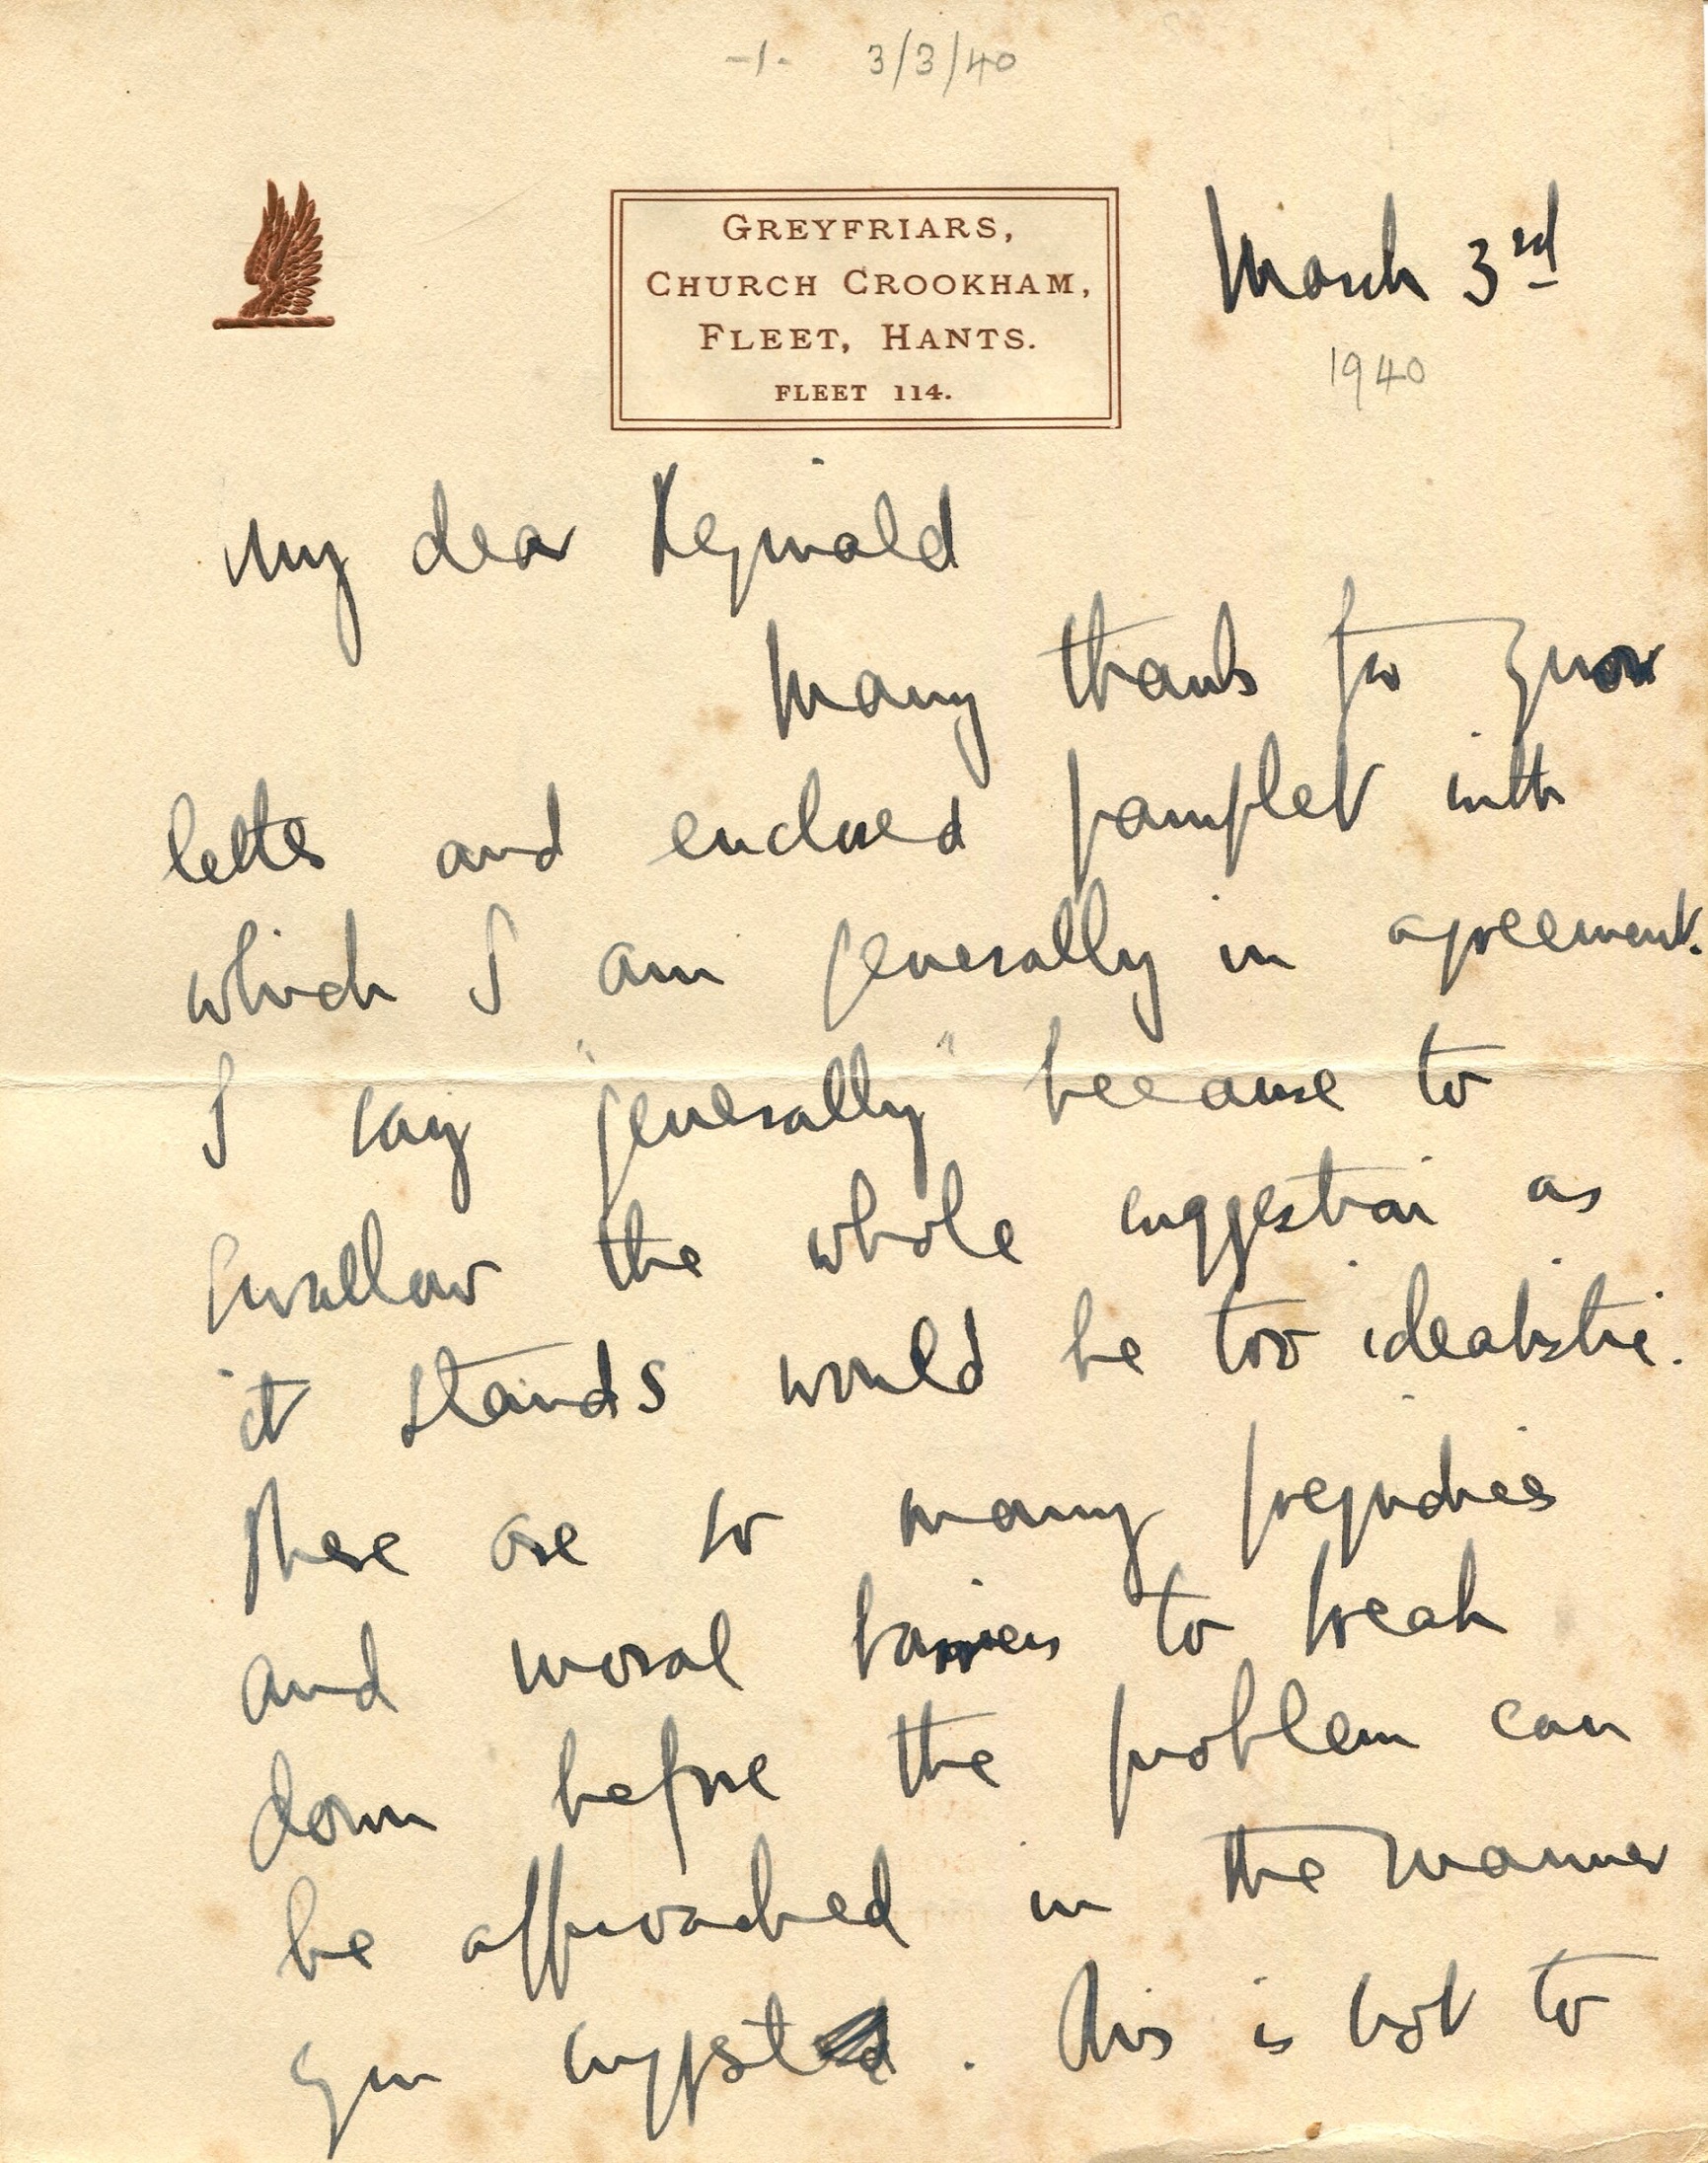 -1- 3/3/40
GREYFRIARS,
CHURCH CROOKHAM,
FLEET, HANTS.
FLEET 114.
March 3rd
1940
My dear Reginald
Many thanks for your
letter and enclosed pamflet with
which I am generally in agreement.
I say "generally" because to
swallow the whole suggestion as
it stands would be too idealistic.
There are so many prejudices
and moral barriers to break
down before the problem can
be approached in the manner
you suggest. This is not to